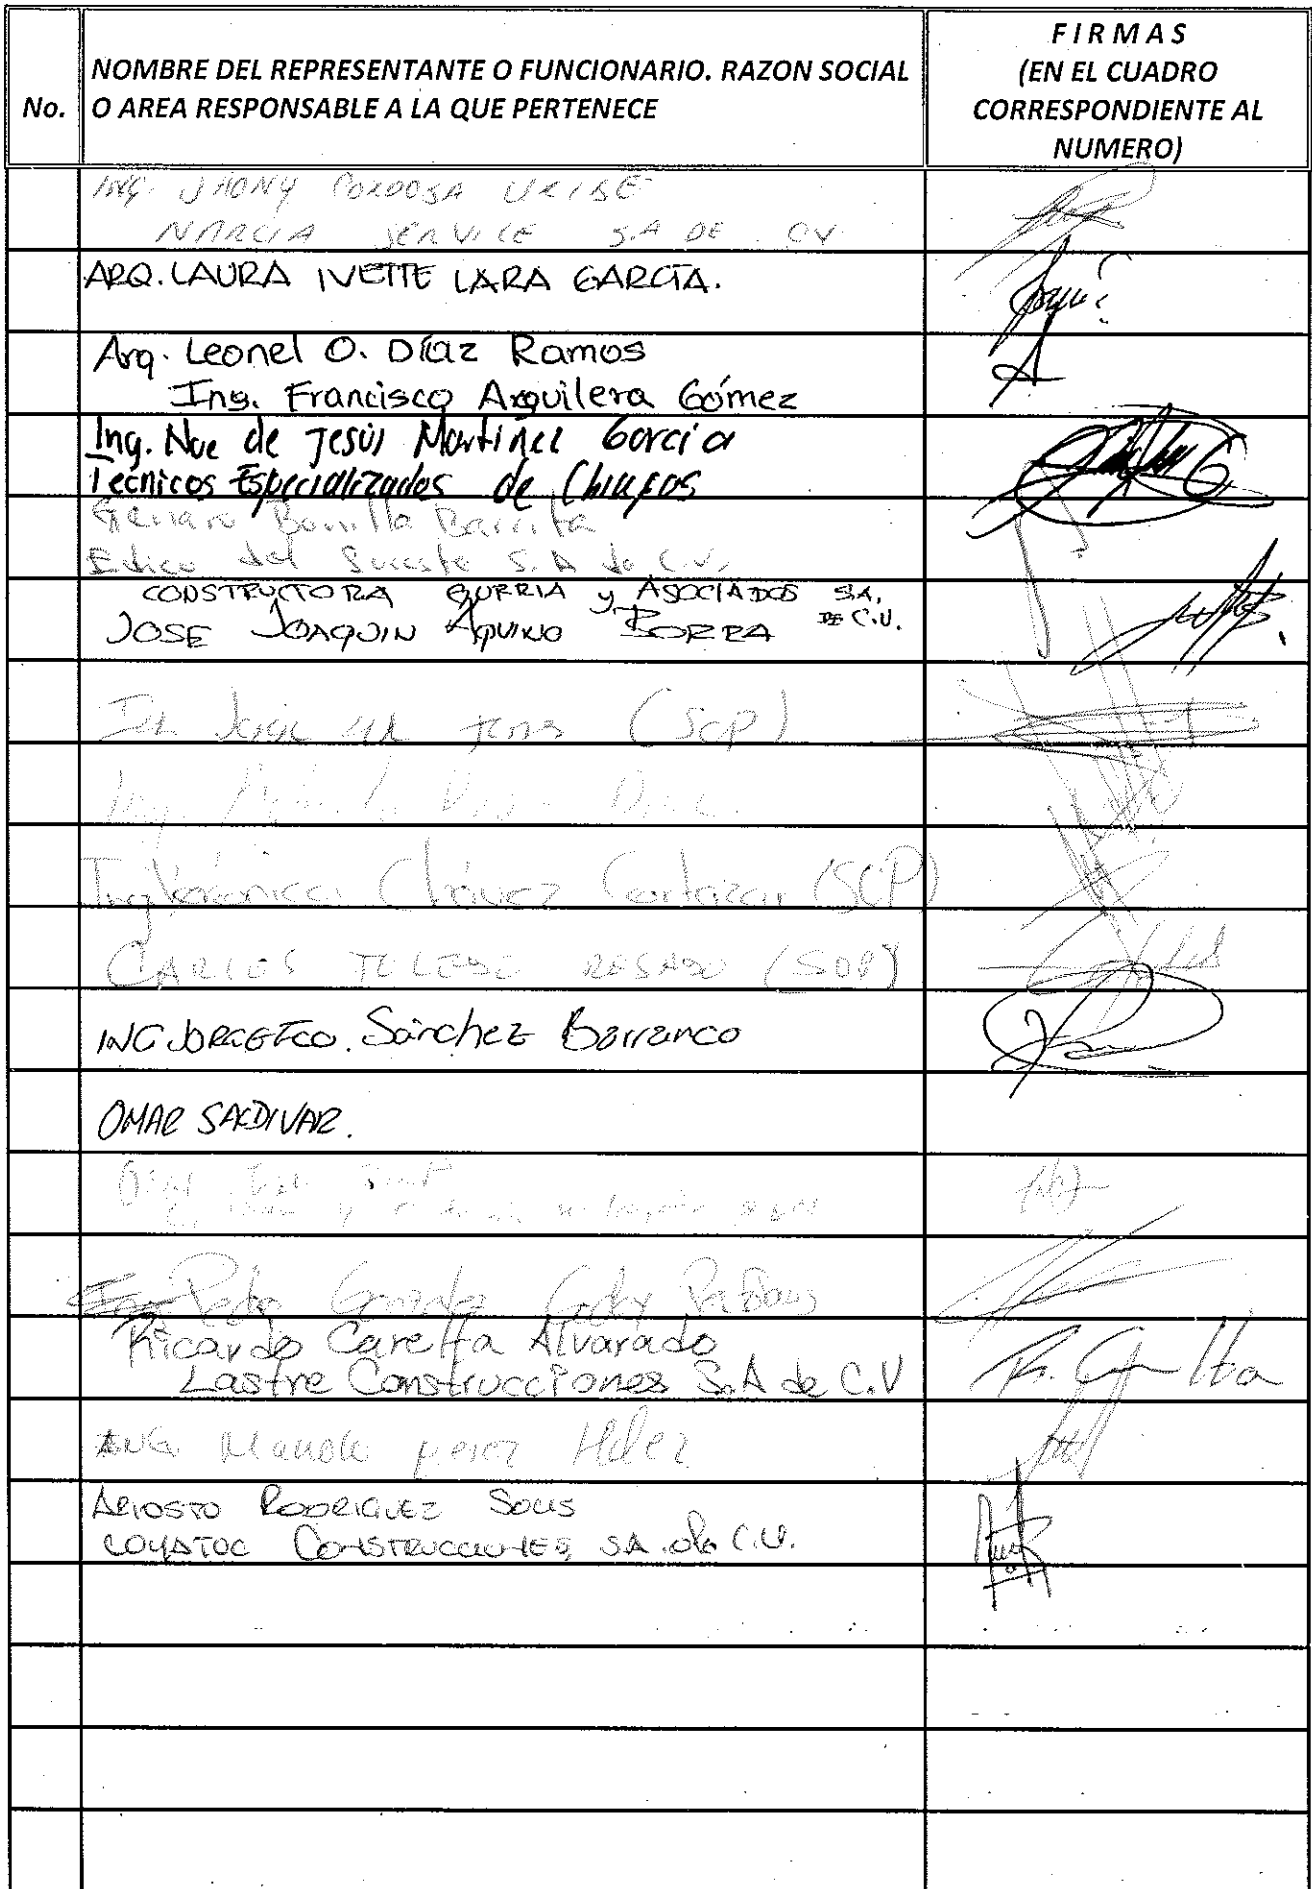 No.
NOMBRE DEL REPRESENTANTE O FUNCIONARIO. RAZON SOCIAL
O AREA RESPONSABLE A LA QUE PERTENECE
FIRMAS
(EN EL CUADRO
CORRESPONDIENTE AL
NUMERO)
ING. JHONY CORDOSA URIBE
NARCIA SERVICE S.A DE CV
ARQ. LAURA IVETTE LARA GARCÍA.
Arq. Leonel O. Díaz Ramos
Ing. Francisco Arquilera Gómez
Ing. Noe de Jesús Martínez García
Técnicos Especializados de Chiapas
Genaro Bonilla Barrita
Edico del Sureste S.A de C.V.
CONSTRUCTORA GURRIA y ASOCIADOS SA.
DE C.V.
JOSE JOAQUIN AQUINO BORRA
(SCP)
Ing.
Ing Verónica Chávez Cortazar (SCP)
CARLOS ROSADO (SOP)
ING JORGE FCO. Sánchez Barranco
OMAR SALDIVAR.
Ing Pedro Gonzalez
Ricardo Caretta Alvarado
Lastre Construcciones S.A de C.V
R. Caretta
ING. Manolo perez Hdez
ARIOSTO RODRIGUEZ SOLIS
COYATOC CONSTRUCCIONES, SA. de C.V.